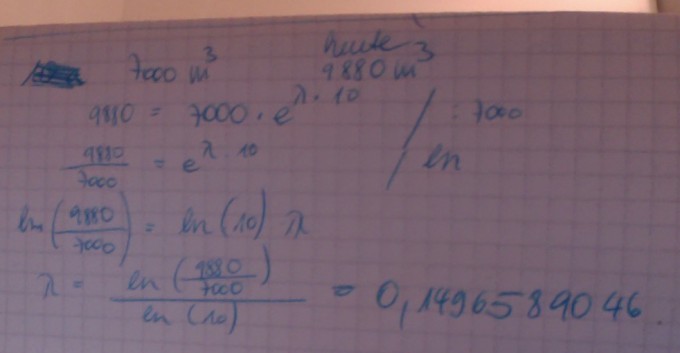 heute
7000 m³ 9880 m³
9880 = 7000 · e^(λ · 10) / : 7000
9880/7000 = e^(λ · 10) / ln
ln(9880/7000) = ln(10) λ
λ = ln(9880/7000)/ln(10) = 0,1496589046.